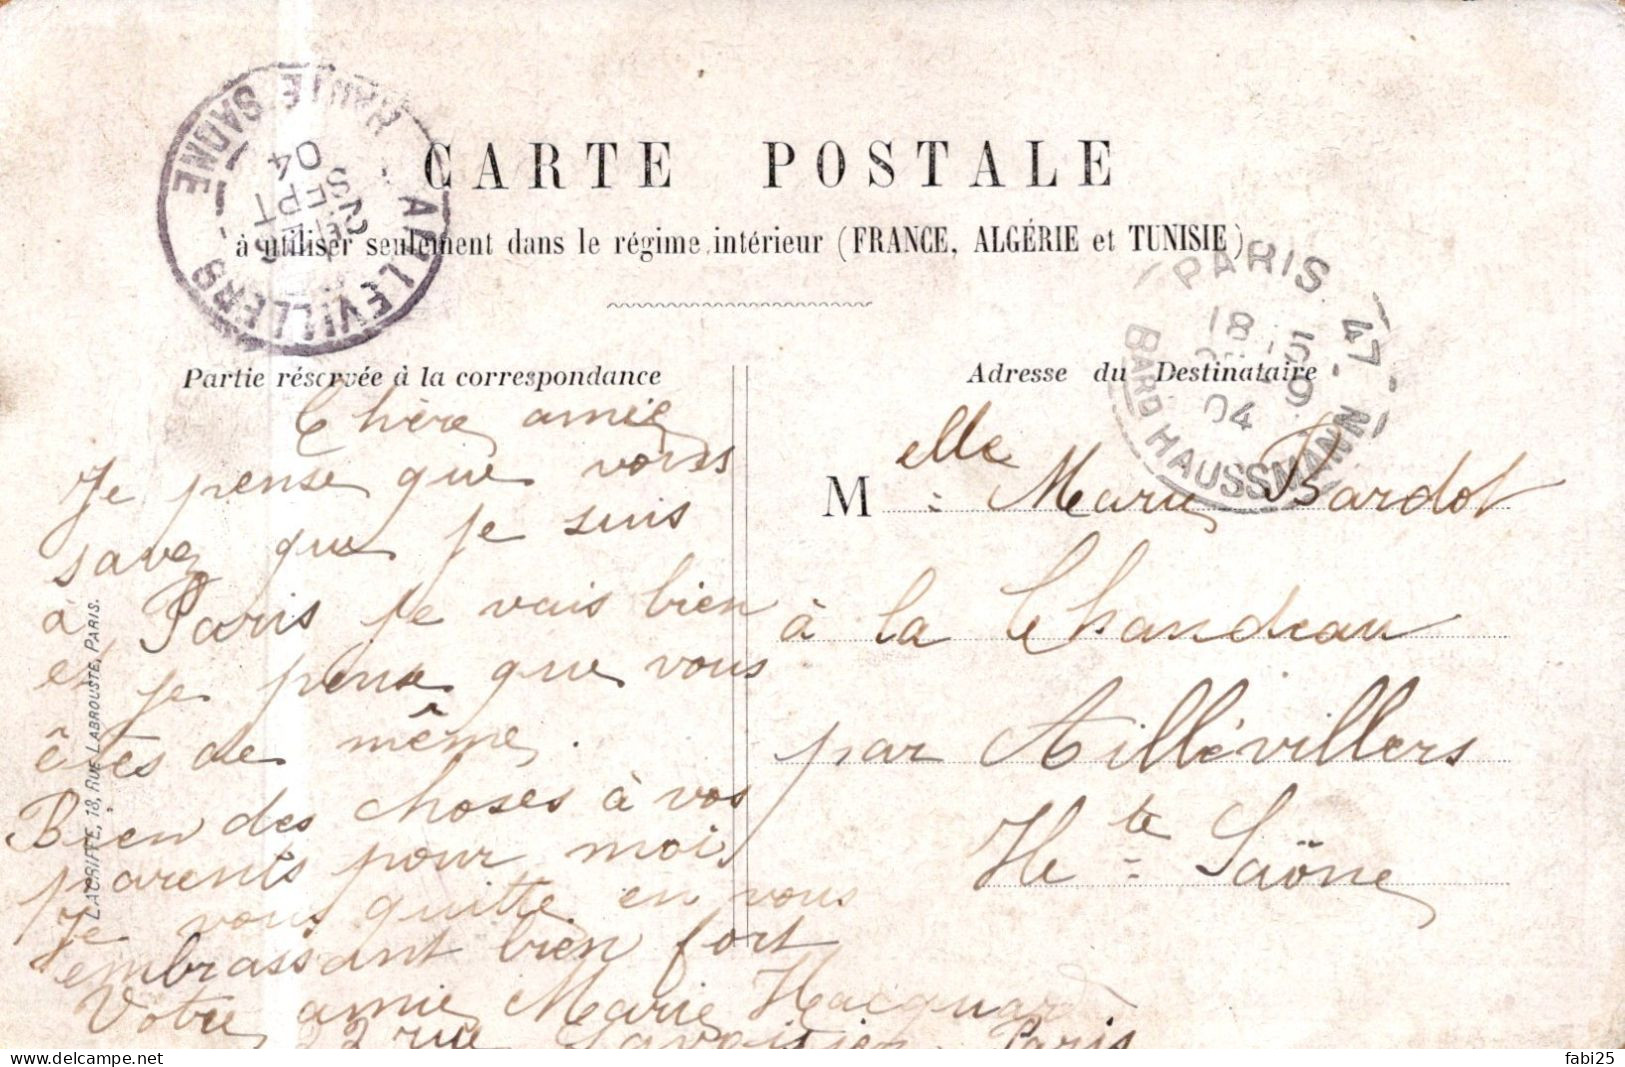 CARTE POSTALE
à utiliser seulement dans le régime intérieur (FRANCE, ALGÉRIE et TUNISIE)
AILLEVILLERS
HAUTE SAONE
SEPT
04
PARIS 47
BARD HAUSSMANN
18 15
9
04
Partie réservée à la correspondance
Chère amie
Je pense que vous
savez que je suis
à Paris je vais bien
et je pense que vous
êtes de même.
Bien des choses à vos
parents pour moi
Je vous quitte en vous
embrassant bien fort
Votre amie Marie Hacquard
22 rue Lavoisier Paris
Adresse du Destinataire
Melle Marie Bardot
à la Chandeau
par Aillévillers
Hte Saône
LACRIFFE, 18, RUE LABROUSTE, PARIS.
fabi25